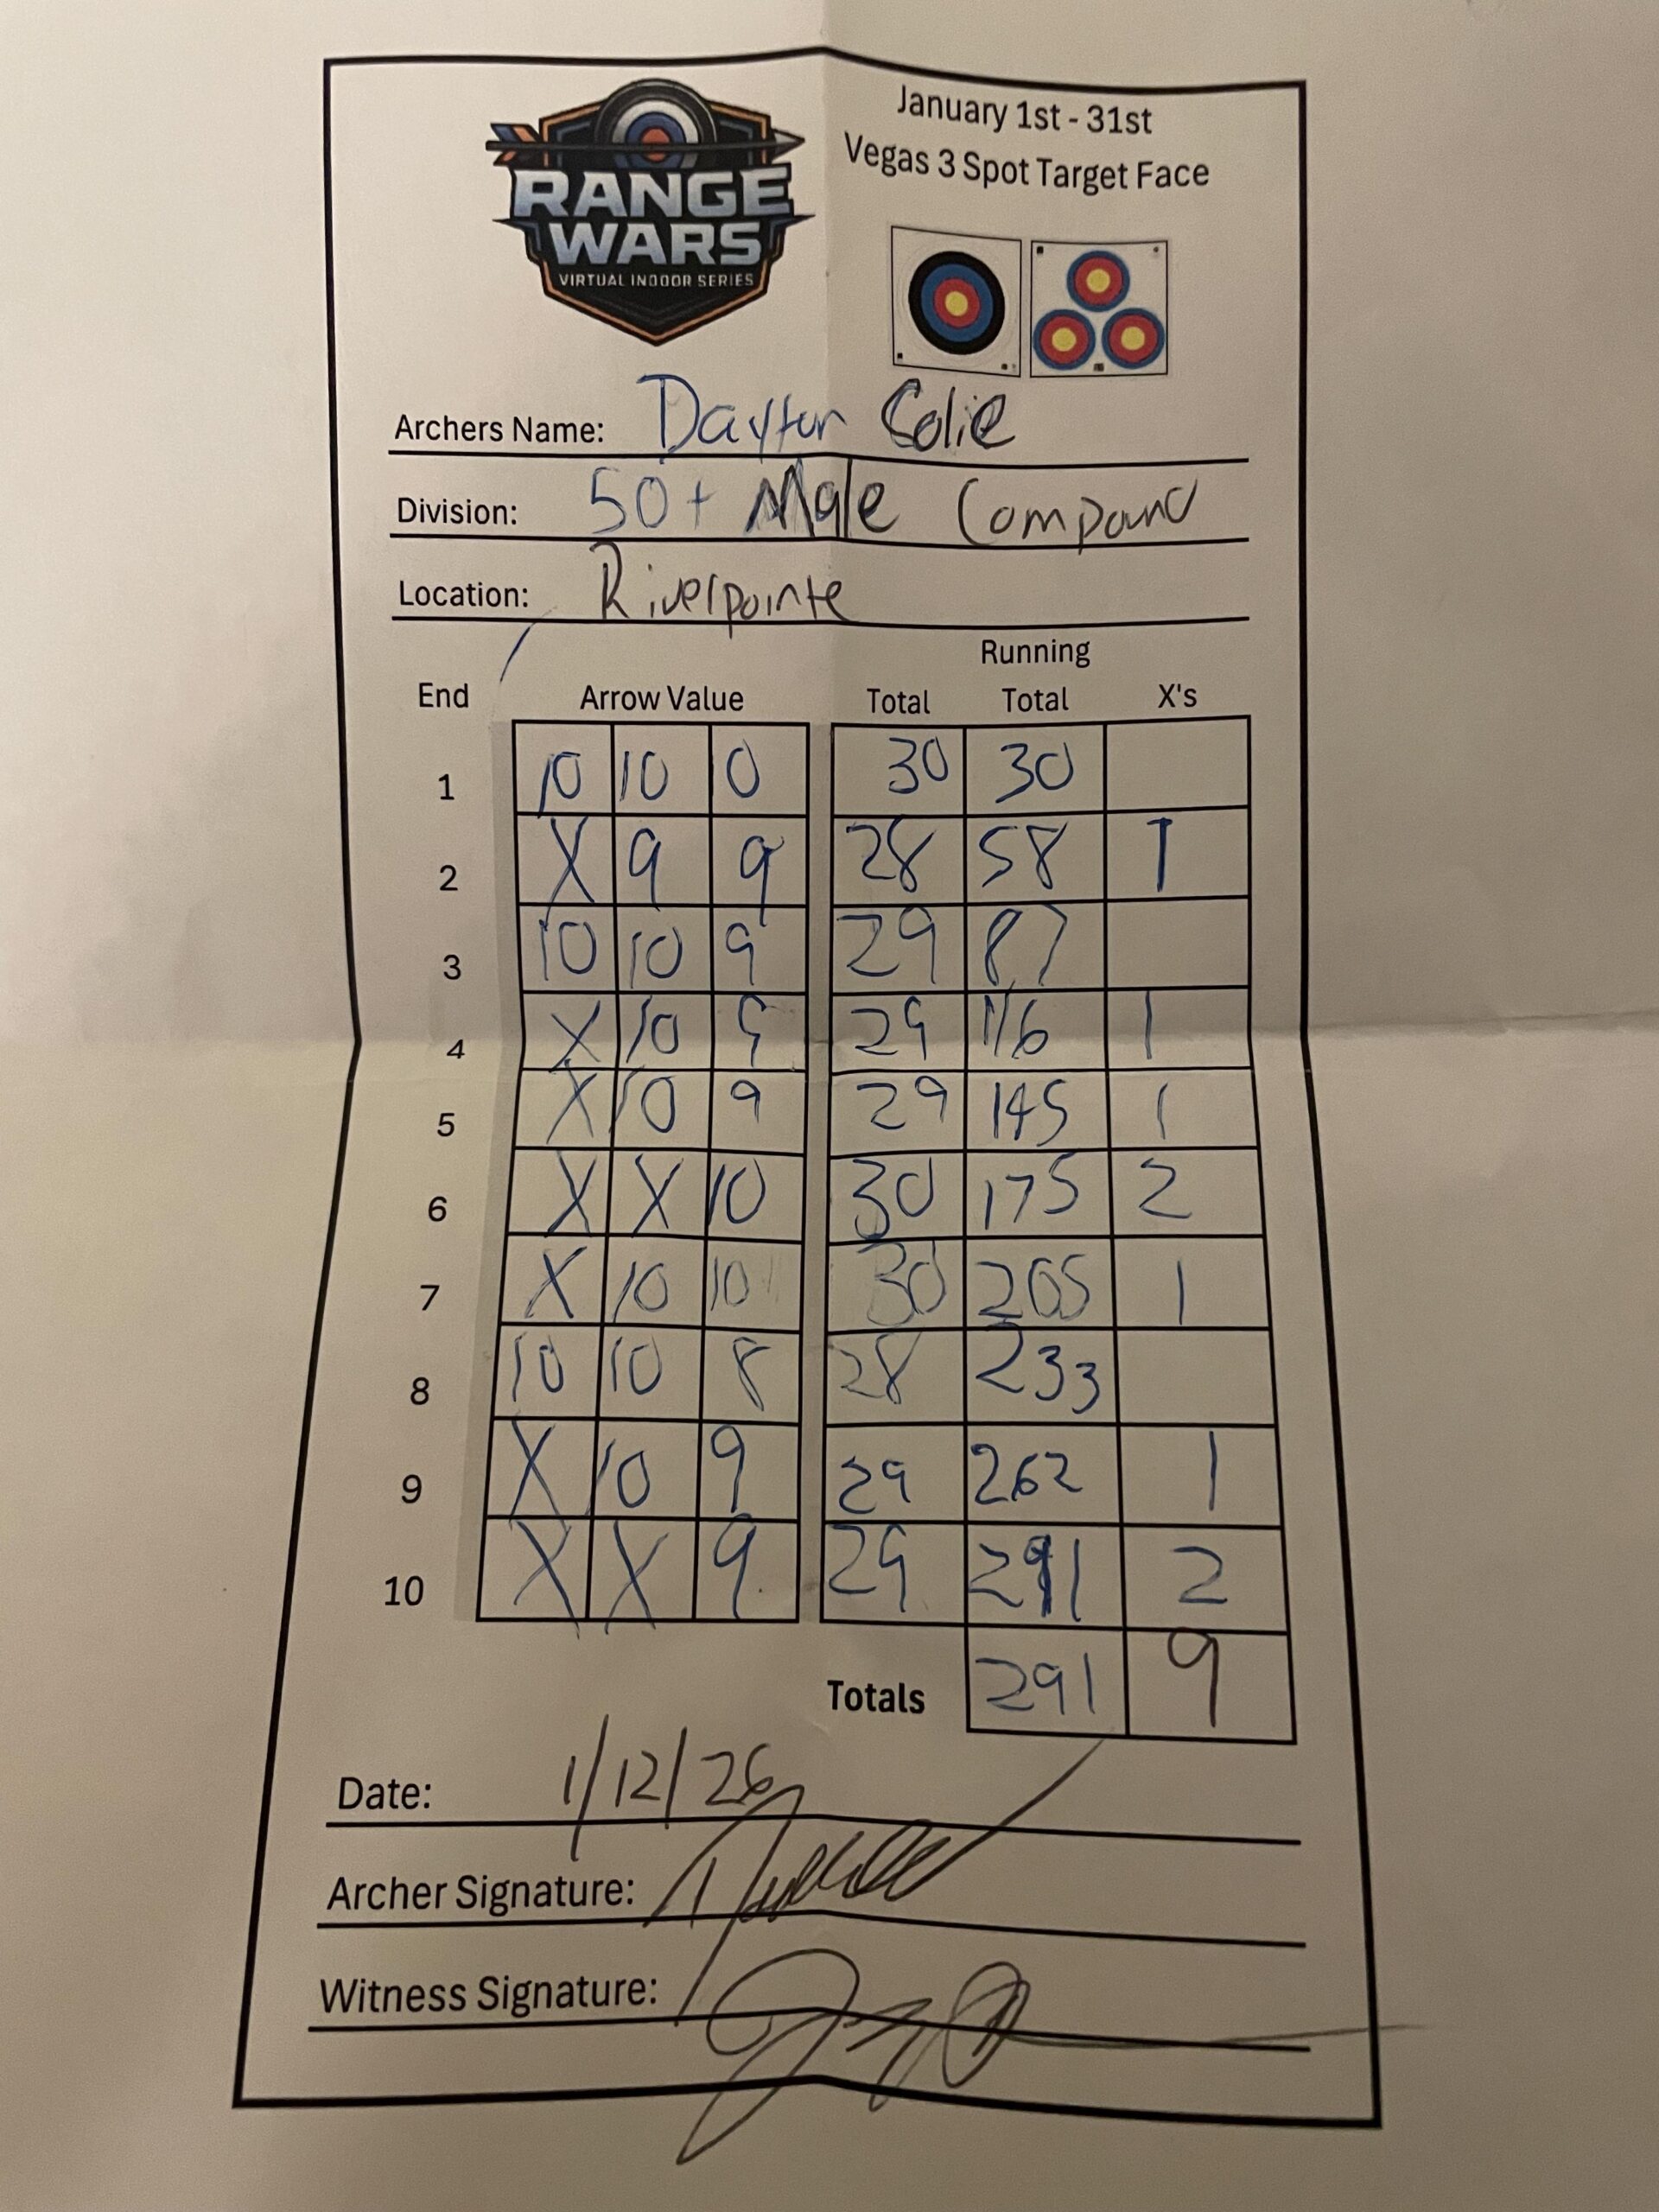 RANGE
WARS
VIRTUAL INDOOR SERIES
January 1st - 31st
Vegas 3 Spot Target Face
Archers Name: Dayton Solie
Division: 50+ Male Compound
Location: Riverpointe
Running
End Arrow Value Total Total X's
1 10 10 0 30 30
2 X 9 9 28 58 1
3 10 10 9 29 87
4 X 10 9 29 116 1
5 X 10 9 29 145 1
6 X X 10 30 175 2
7 X 10 10 30 205 1
8 10 10 8 28 233
9 X 10 9 29 262 1
10 X X 9 29 291 2
Totals 291 9
Date: 1/12/26
Archer Signature:
Witness Signature: